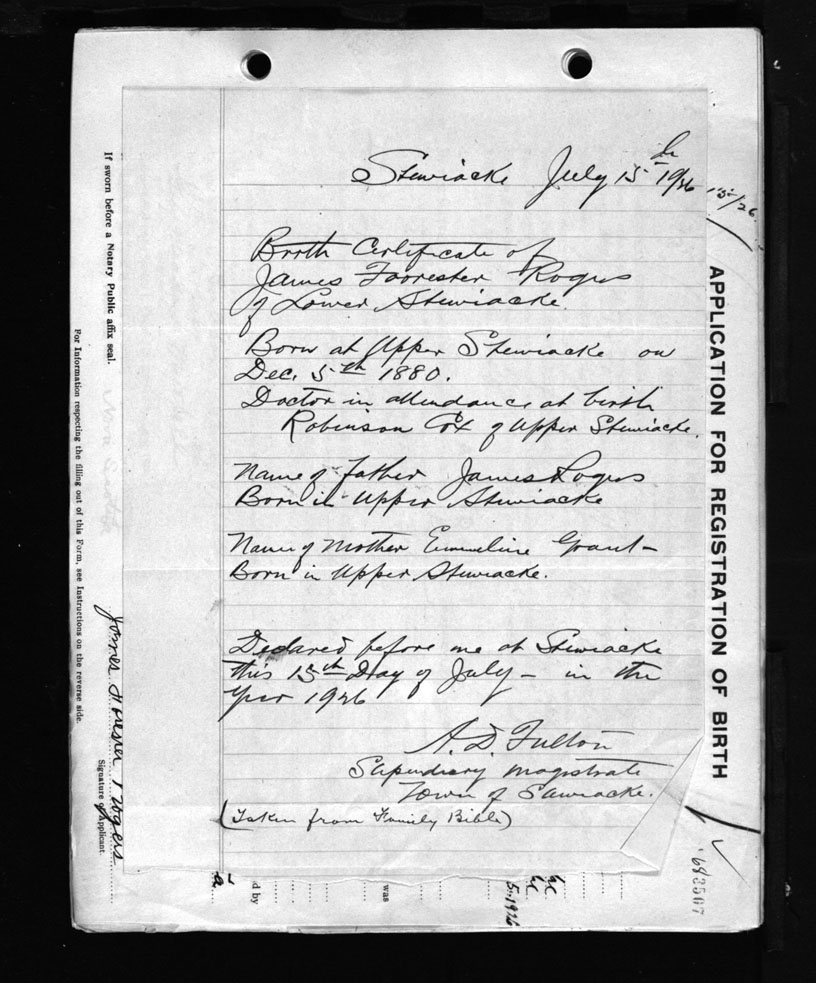 Stewiacke July 15th 1926
15/26
Birth Certificate of
James Foorester Rogers
of Lower Stewiacke.
Born at Upper Stewiacke on
Dec. 5th 1880.
Doctor in attendance at birth
Robinson Cox of Upper Stewiacke.
Name of Father James Rogers
Born in Upper Stewiacke
Name of Mother Emmeline Grant
Born in Upper Stewiacke.
Declared before me at Stewiacke
this 15th Day of July - in the
Year 1926
A. D. Fulton
Stipendiary Magistrate
Town of Stewiacke.
(Taken from Family Bible)
APPLICATION FOR REGISTRATION OF BIRTH
If sworn before a Notary Public affix seal.
For Information respecting the filling out of this Form, see Instructions on the reverse side.
James Forester Rogers
Signature of Applicant.
d by
was
5.1926